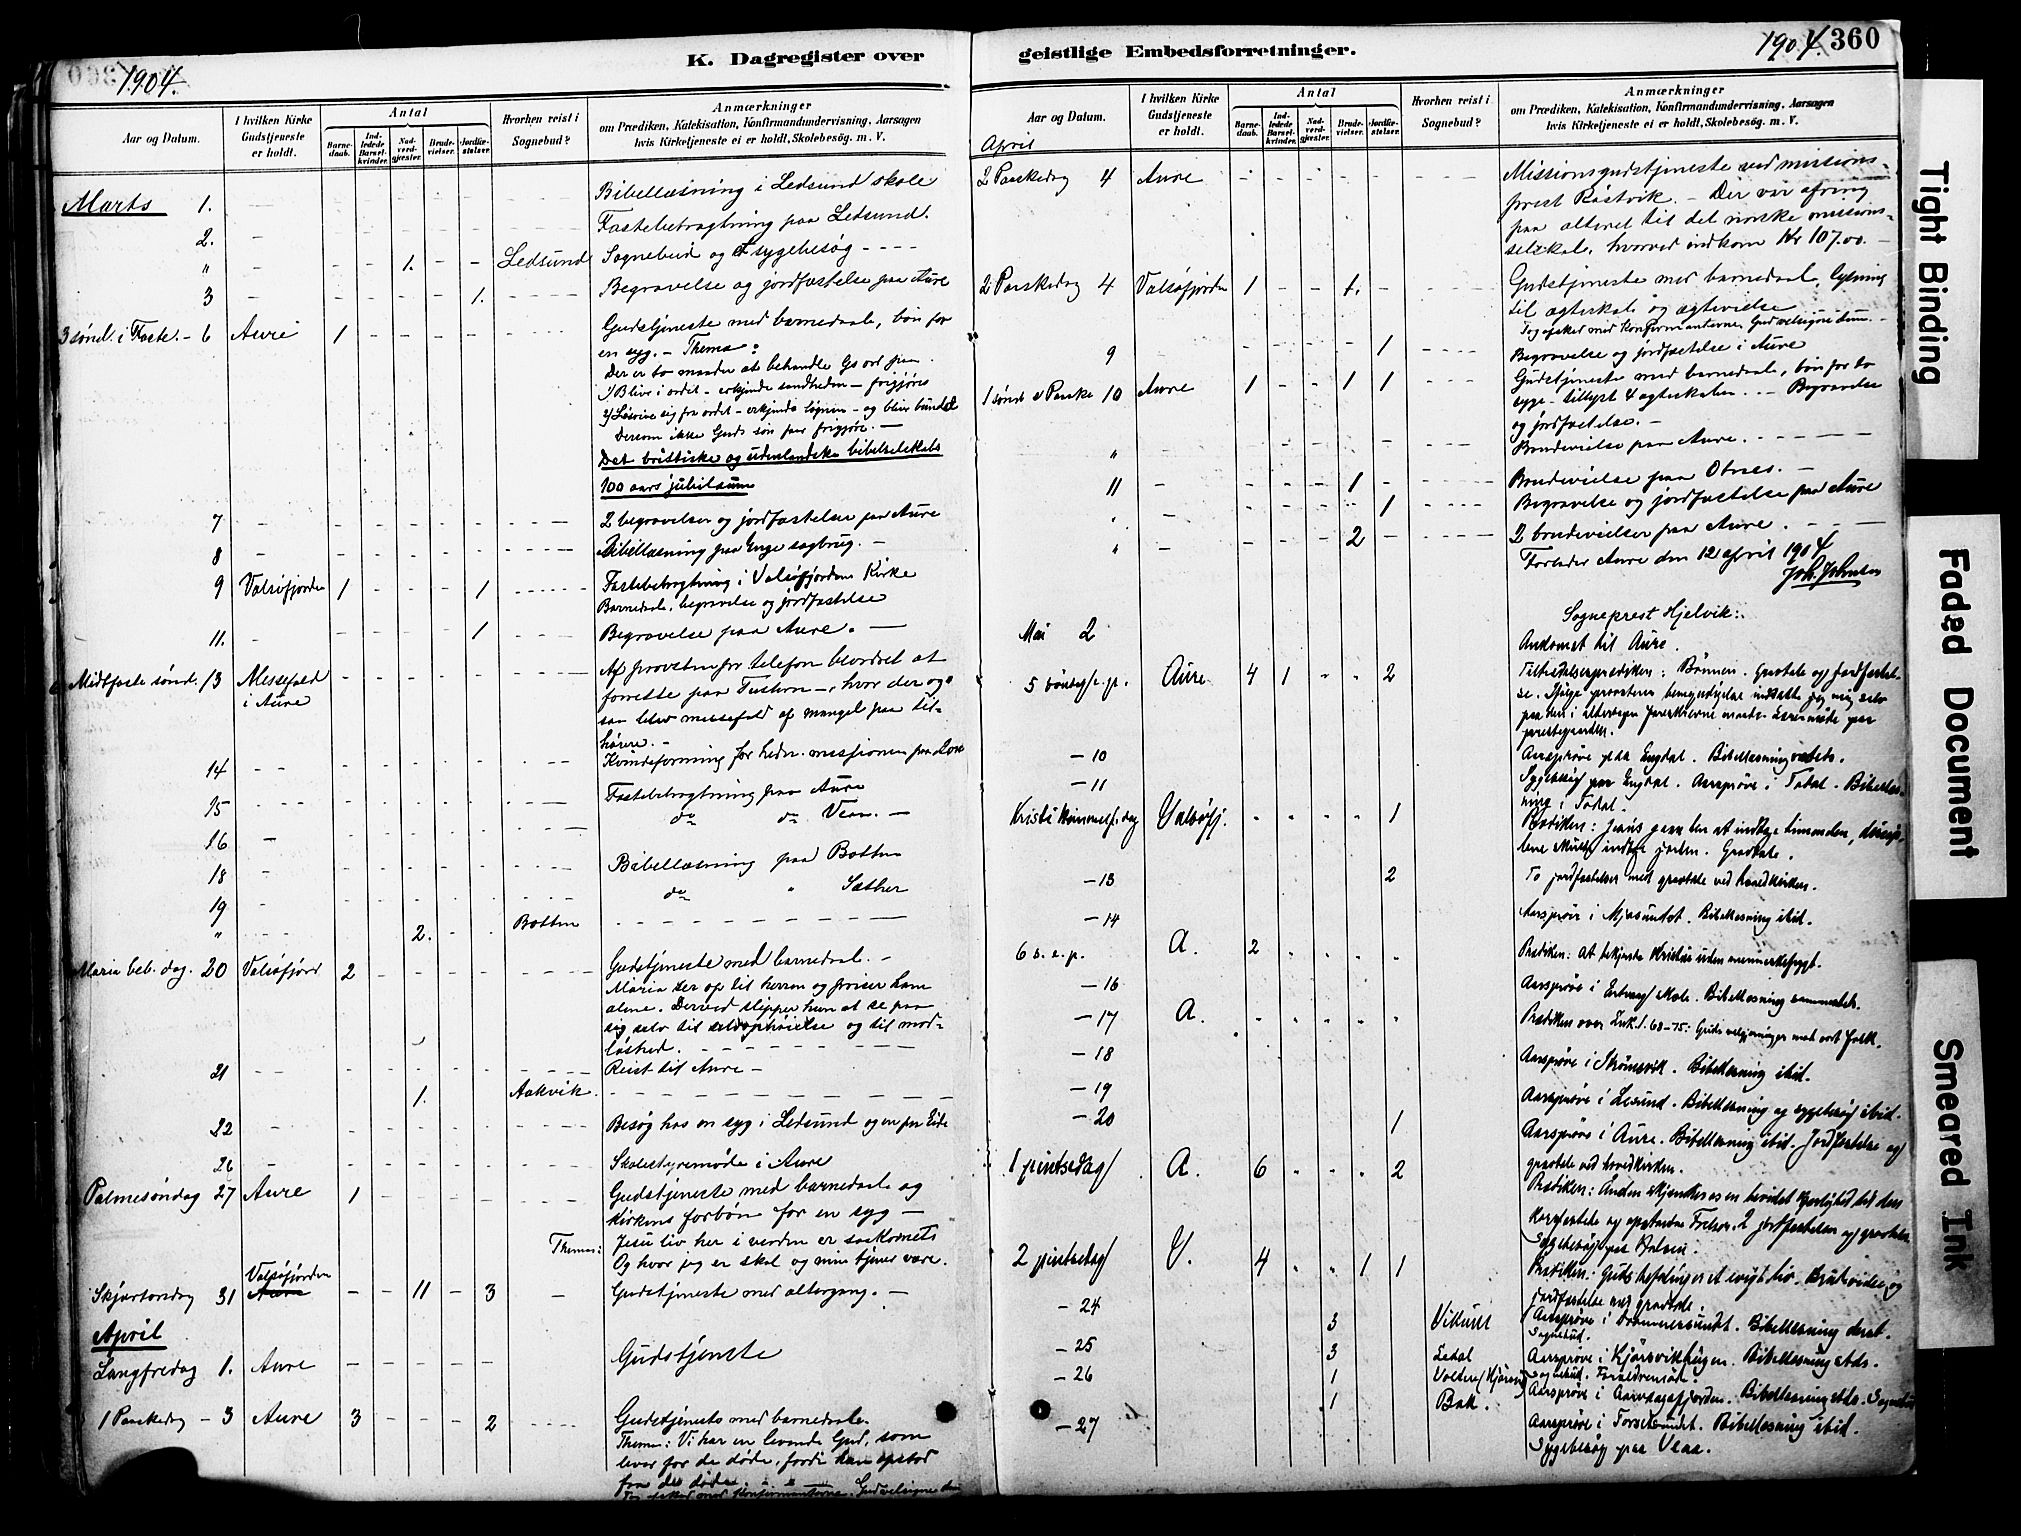 K. Dagregister over
1904.
Aar og Datum.
I hvilken Kirke
Gudstjeneste
er holdt.
Antal
Barne-
daab.
Ind-
ledede
Barsel-
kvinder.
Nad-
verd-
gjester.
Brude-
vielser.
Jordfæ-
stelser.
Hvorhen reist i
Sognebud?
Anmærkninger
om Prædiken, Katekisation, Konfirmandundervisning, Aarsagen
hvis Kirketjeneste ei er holdt, Skolebesøg. m. V.
Marts 1. Bibellæsning i Ledsund skole
Fastebetragtning paa Ledsund.
2.
" 1. Ledsund Sognebud og sygebesøg
3 1. Begravelse og jordfæstelse paa Aure
3 sønd. i Faste. - 6 Aure 1 Gudstjeneste med barnedaab, bøn for
en syg. - Thema:
Der er to maader at behandle Gs ord paa.
1) Blive i ordet - erkjende sandheden - frigjøres
2) Løsrive sig fra ordet - erkjende løgnen - og blive bundet
Dersom ikke Guds søn faar frigjøre. -
Det britiske og udenlandske bibelselskabs
100 aars jubilæum
7 2 begravelser og jordfæstelser paa Aure
8 Bibellæsning paa Enge sagbrug. -
9 Valsøfjorden 1 1 Fastebetragtning i Valsøfjordens Kirke
Barnedaab, begravelse og jordfæstelse
11. 1 Begravelse paa Aure. -
Midtfaste sønd. 13 Messefald
i Aure
Af provsten pr telefon beordret at
forrette paa Tustern -, hvor der og-
saa blev messefald af mangel paa til-
hørere. -
14 Kvindeforening for hedn. missionen paa
15 Fastebetragtning paa Aure
16 do do Vean. -
18 Bibellæsning paa Botten
19 do " Sæther
" 2. Botten
Maria beb. dag. 20 Valsøfjord 2 Gudstjeneste med barnedaab. -
Maria ser op til herren og priser ham
alene. Derved slipper hun at se paa
sig selv til selvophøielse og til mod-
løshed.
21 Reist til Aure -
1. Aakvik.
22 Besøg hos en syg i Ledsund og en paa Eide
26 Skolestyremøde i Aure
Palmesøndag 27 Aure 1 Gudstjeneste med barnedaab og
Kirkens forbøn for en syg -
Thema: Jesu liv her i verden er saakornets
Og hvor jeg er skal og min tjener være.
Valsøfjorden
Skjærtorsdag 31 Aure 11 3 Gudstjeneste med altergang. -
April
Langfredag 1. Aure Gudstjenste
1 Paaskedag - 3 Aure 3 2 Gudstjeneste med barnedaab.
Thema: Vi har en levende Gud, som
lever for de døde, fordi han opstod
fra de døde.
Tog afsked med Konfirmanterne. Gud velsigne dem
geistlige Embedsforretninger.
1904. 360
Aar og Datum.
I hvilken Kirke
Gudstjeneste
er holdt.
Antal
Barne-
daab.
Ind-
ledede
Barsel-
kvinder.
Nad-
verd-
gjester.
Brude-
vielser.
Jordfæ-
stelser.
Hvorhen reist i
Sognebud?
Anmærkninger
om Prædiken, Katekisation, Konfirmandundervisning, Aarsagen
hvis Kirketjeneste ei er holdt, Skolebesøg. m. V.
April
2 Paaskedag 4 Aure Missionsgudstjeneste ved missions-
prest Råstvik. - Der var ofring
paa alteret til det norske missions-
selskab, hvorved indkom Kr 107.00. -
2 Paaskedag 4 Valsøfjorden 1 1. Gudstjeneste med barnedaab, lysning
til ægteskab og ægtevielse
Tog afsked med Konfirmanterne, Gud velsigne dem. -
9 1 Begravelse og jordfæstelse i Aure
1 sønd e Paaske 10 Aure 1 1 1 Gudstjeneste med barnedaab, bøn for to
syge - tillyst 4 ægteskaber. - Begravelse
og jordfæstelse. -
" Brudevielse paa Aure.
11 1 Brudevielse paa Otnes. -
" 1 Begravelse og jordfæstelse paa Aure
" 2 2 brudevielser paa Aure.
Forlader Aure den 12 april 1904
Joh. Johnsen
Sogneprest Hjelvik:
Mai 2 Ankomst til Aure.
5 søndag e. p. Aure 4 1 " " 2 Tiltrædelsesprædiken: Bønnen. Gravtale og jordfæstel-
se. Ifølge provstens bemyndigelse indsatte jeg mig selv
prestegaarden.
- 10 Aarsprøve paa Engdal. Bibellæsning sammesteds.
- 11 Sygebesøg paa Engdal. Aarsprøve i Todal. Bibellæs-
ning i Todal.
Kristi Himmelf. dag Valsøfj. 1 Prædiken: Jesus gaar hen at indtage himmelen, discip-
lene skulle indtage jorden. Gravtale.
- 13 2 To jordfæstelser med gravtale ved hovedkirken.
- 14 Aarsprøve i Mjosundet. Bibellæsning ibid.
6 s. e. p. A. 2 Prædiken: At bekjende Kristus uden menneskefrygt.
- 16 Aarsprøve i Mole. Bibellæsning sammesteds.
- 17 A. Prædiken over Luk. 1. 68-75: Guds velgjerninger mod vort folk.
- 18 Aarsprøve i Strømsvik. Bibellæsning ibid.
- 19 Aarsprøve i Lesund. Bibellæsning og sygebesøg ibid.
- 20 1 Aarsprøve i Aure. Bibellæsning ibid. Jordfæstelse og
gravtale ved hovedkirken.
1 pintsedag A. 6 2 Prædiken: Anden skjenker os en hvidet kjærlighed til den
Korsfæstede og opstandne Frelser. 2 jordfæstelser og gravtaler.
Sygebesøg paa
2 pintsedag V. 4 1 1 Prædiken: Guds befaling er et evigt liv. Brudevielse og
jordfæstelse med gravtale.
- 24 3 Vikum Aarsprøve i Drømnessundet. Bibellæsning dersst.
Sognebud.
- 25 3 Aarsprøve i Kjørsvikbugen. Bibellæsning stds.
- 26 1 Sognebud. Forældremøde.
1 Bak. Aarsprøve i Aarvaagsfjorden. Bibellæsning stds. Sognebud
- 27 Aarsprøve i Torsetsundet. Bibellæsning ibid.
Sygebesøg paa Vean.
Tight Binding
Faded Document
Smeared Ink